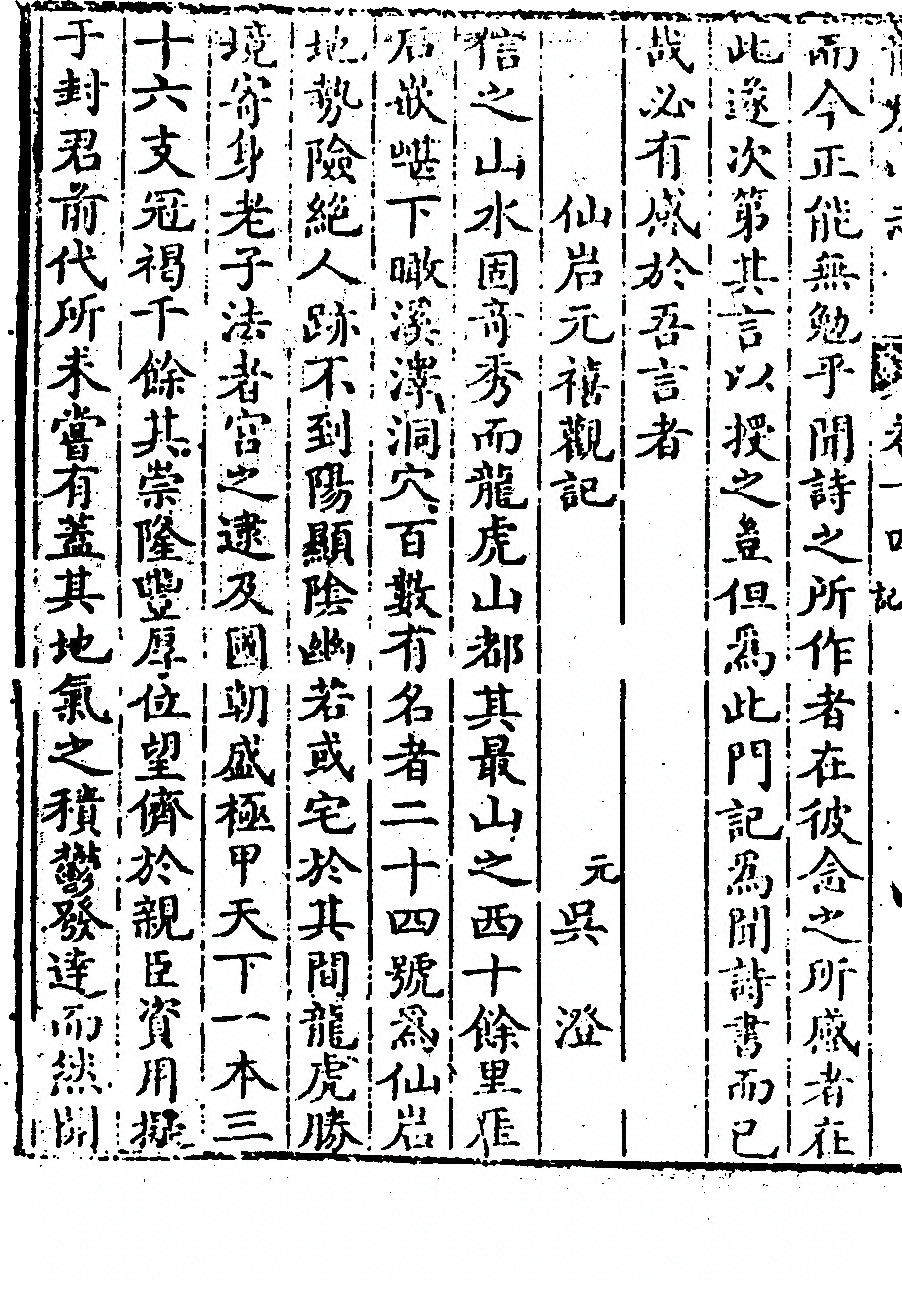 卷十四 記
而今正能無勉乎聞詩之所作者在彼念之所感者在
此遂次第其言以授之豈但爲此門記爲聞詩書而已
哉必有感於吾言者
仙岩元禧觀記 元吳澄
信之山水固奇秀而龍虎山都其最山之西十餘里厓
石嵌嵁下瞰溪潭洞穴百數有名者二十四號爲仙岩
地勢險絕人跡不到陽顯陰幽若或宅於其間龍虎勝
境寄身老子法者宮之逮及國朝盛極甲天下一本三
十六支冠褐千餘其崇隆豐厚位望儕於親臣資用擬
于封君前代所未嘗有蓋其地氣之積鬱發達而然開